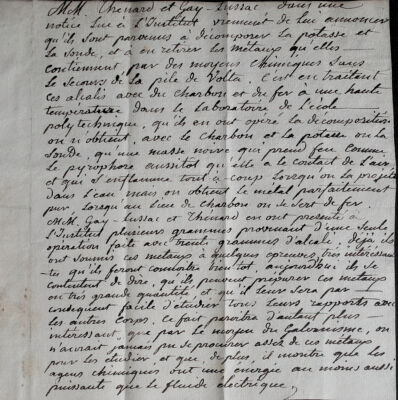 MM. Thenard et Gay-Lussac dans une
notice lue à l'Institut viennent de lui annoncer
qu'ils sont parvenus à décomposer la potasse et
la soude, et à en retirer les métaux qu'elles
contiennent par des moyens chimiques sans
le secours de la pile de Volta. C'est en traitant
ces alcalis avec du charbon et du fer à une haute
température dans le laboratoire de l'école
polytechnique, qu'ils en ont opéré la décomposition
on n'obtient, avec le charbon et la potasse ou la
soude, qu'une masse noire qui prend feu comme
le pyrophore aussitot qu'elle a le contact de l'air
et qui s'enflamme tout à coup lorsqu'on la projette
dans l'eau mais on obtient le métal parfaitement
pur lorsqu'au lieu de charbon on se sert de fer
MM. Gay-Lussac et Thenard en ont présenté à
l'Institut plusieurs grammes provenant d'une seule
opération faite avec trente grammes d'alcali. déjà ils
ont soumis ces métaux à quelques épreuves très intéressan-
-tes qu'ils feront connoitre bientot, aujourd'hui ils se
contentent de dire, qu'ils peuvent préparer ces métaux
en très grande quantité, et qu'il leur sera par
conséquent facile d'étudier tous leurs rapports avec
les autres corps. Ce fait paroitra d'autant plus
intéressant, que par le moyen du Galvanisme, on
n'auroit jamais pu se procurer assez de ces métaux
pour les étudier et que, de plus, il montre que les
agens chimiques ont une énergie au moins aussi
puissante que le fluide électrique.